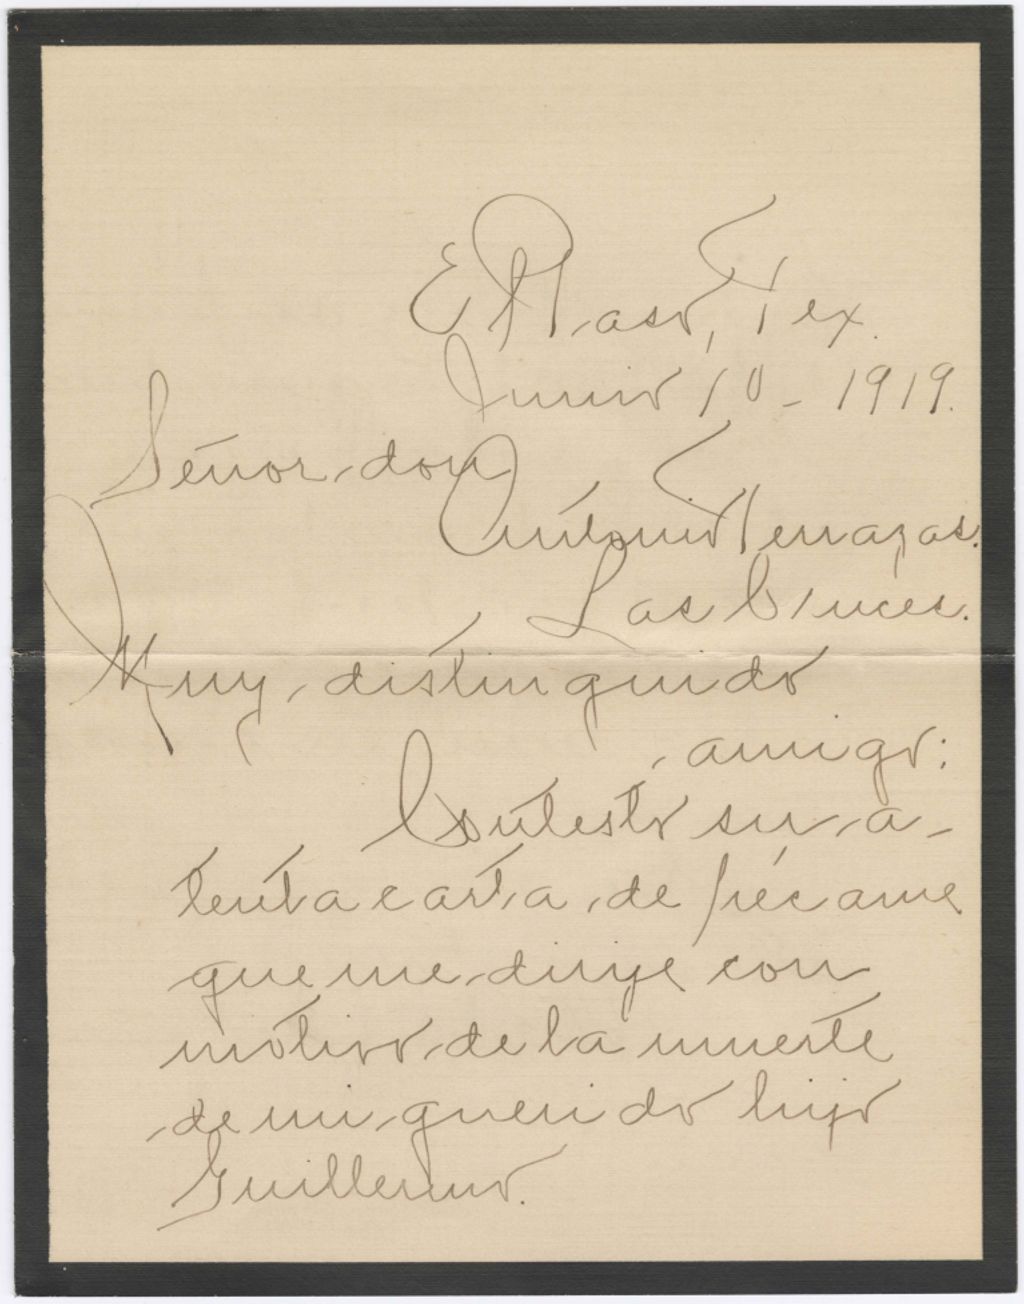 El Paso, Tex.
Junio 10 - 1919.
Señor don
Antonio Terrazas.
Las Cruces.
Muy distinguido
amigo:
Contesto su a-
tenta carta de pésame
que me dirije con
motivo de la muerte
de mi querido hijo
Guillermo.